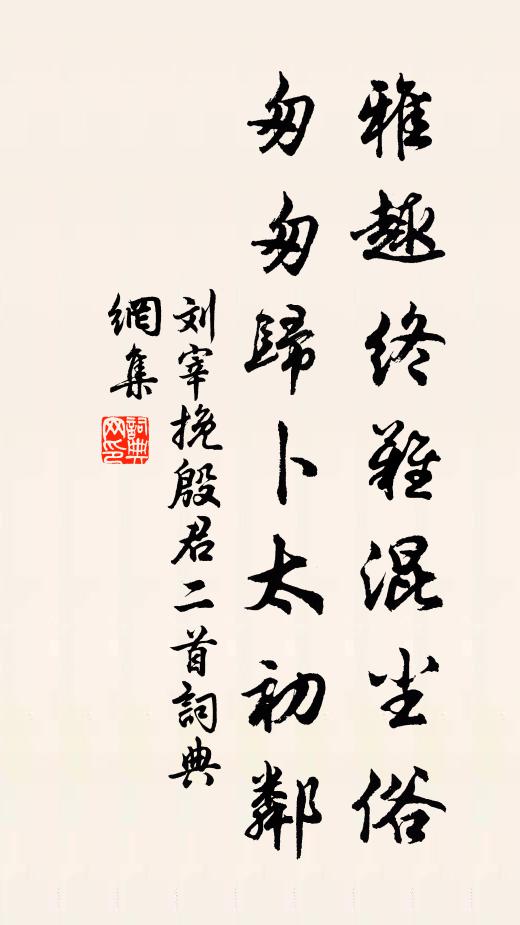 雅趣终難混尘俗
匆匆歸卜太初鄰
刘宰挽殷君二首詞典
網集
詞典
网印